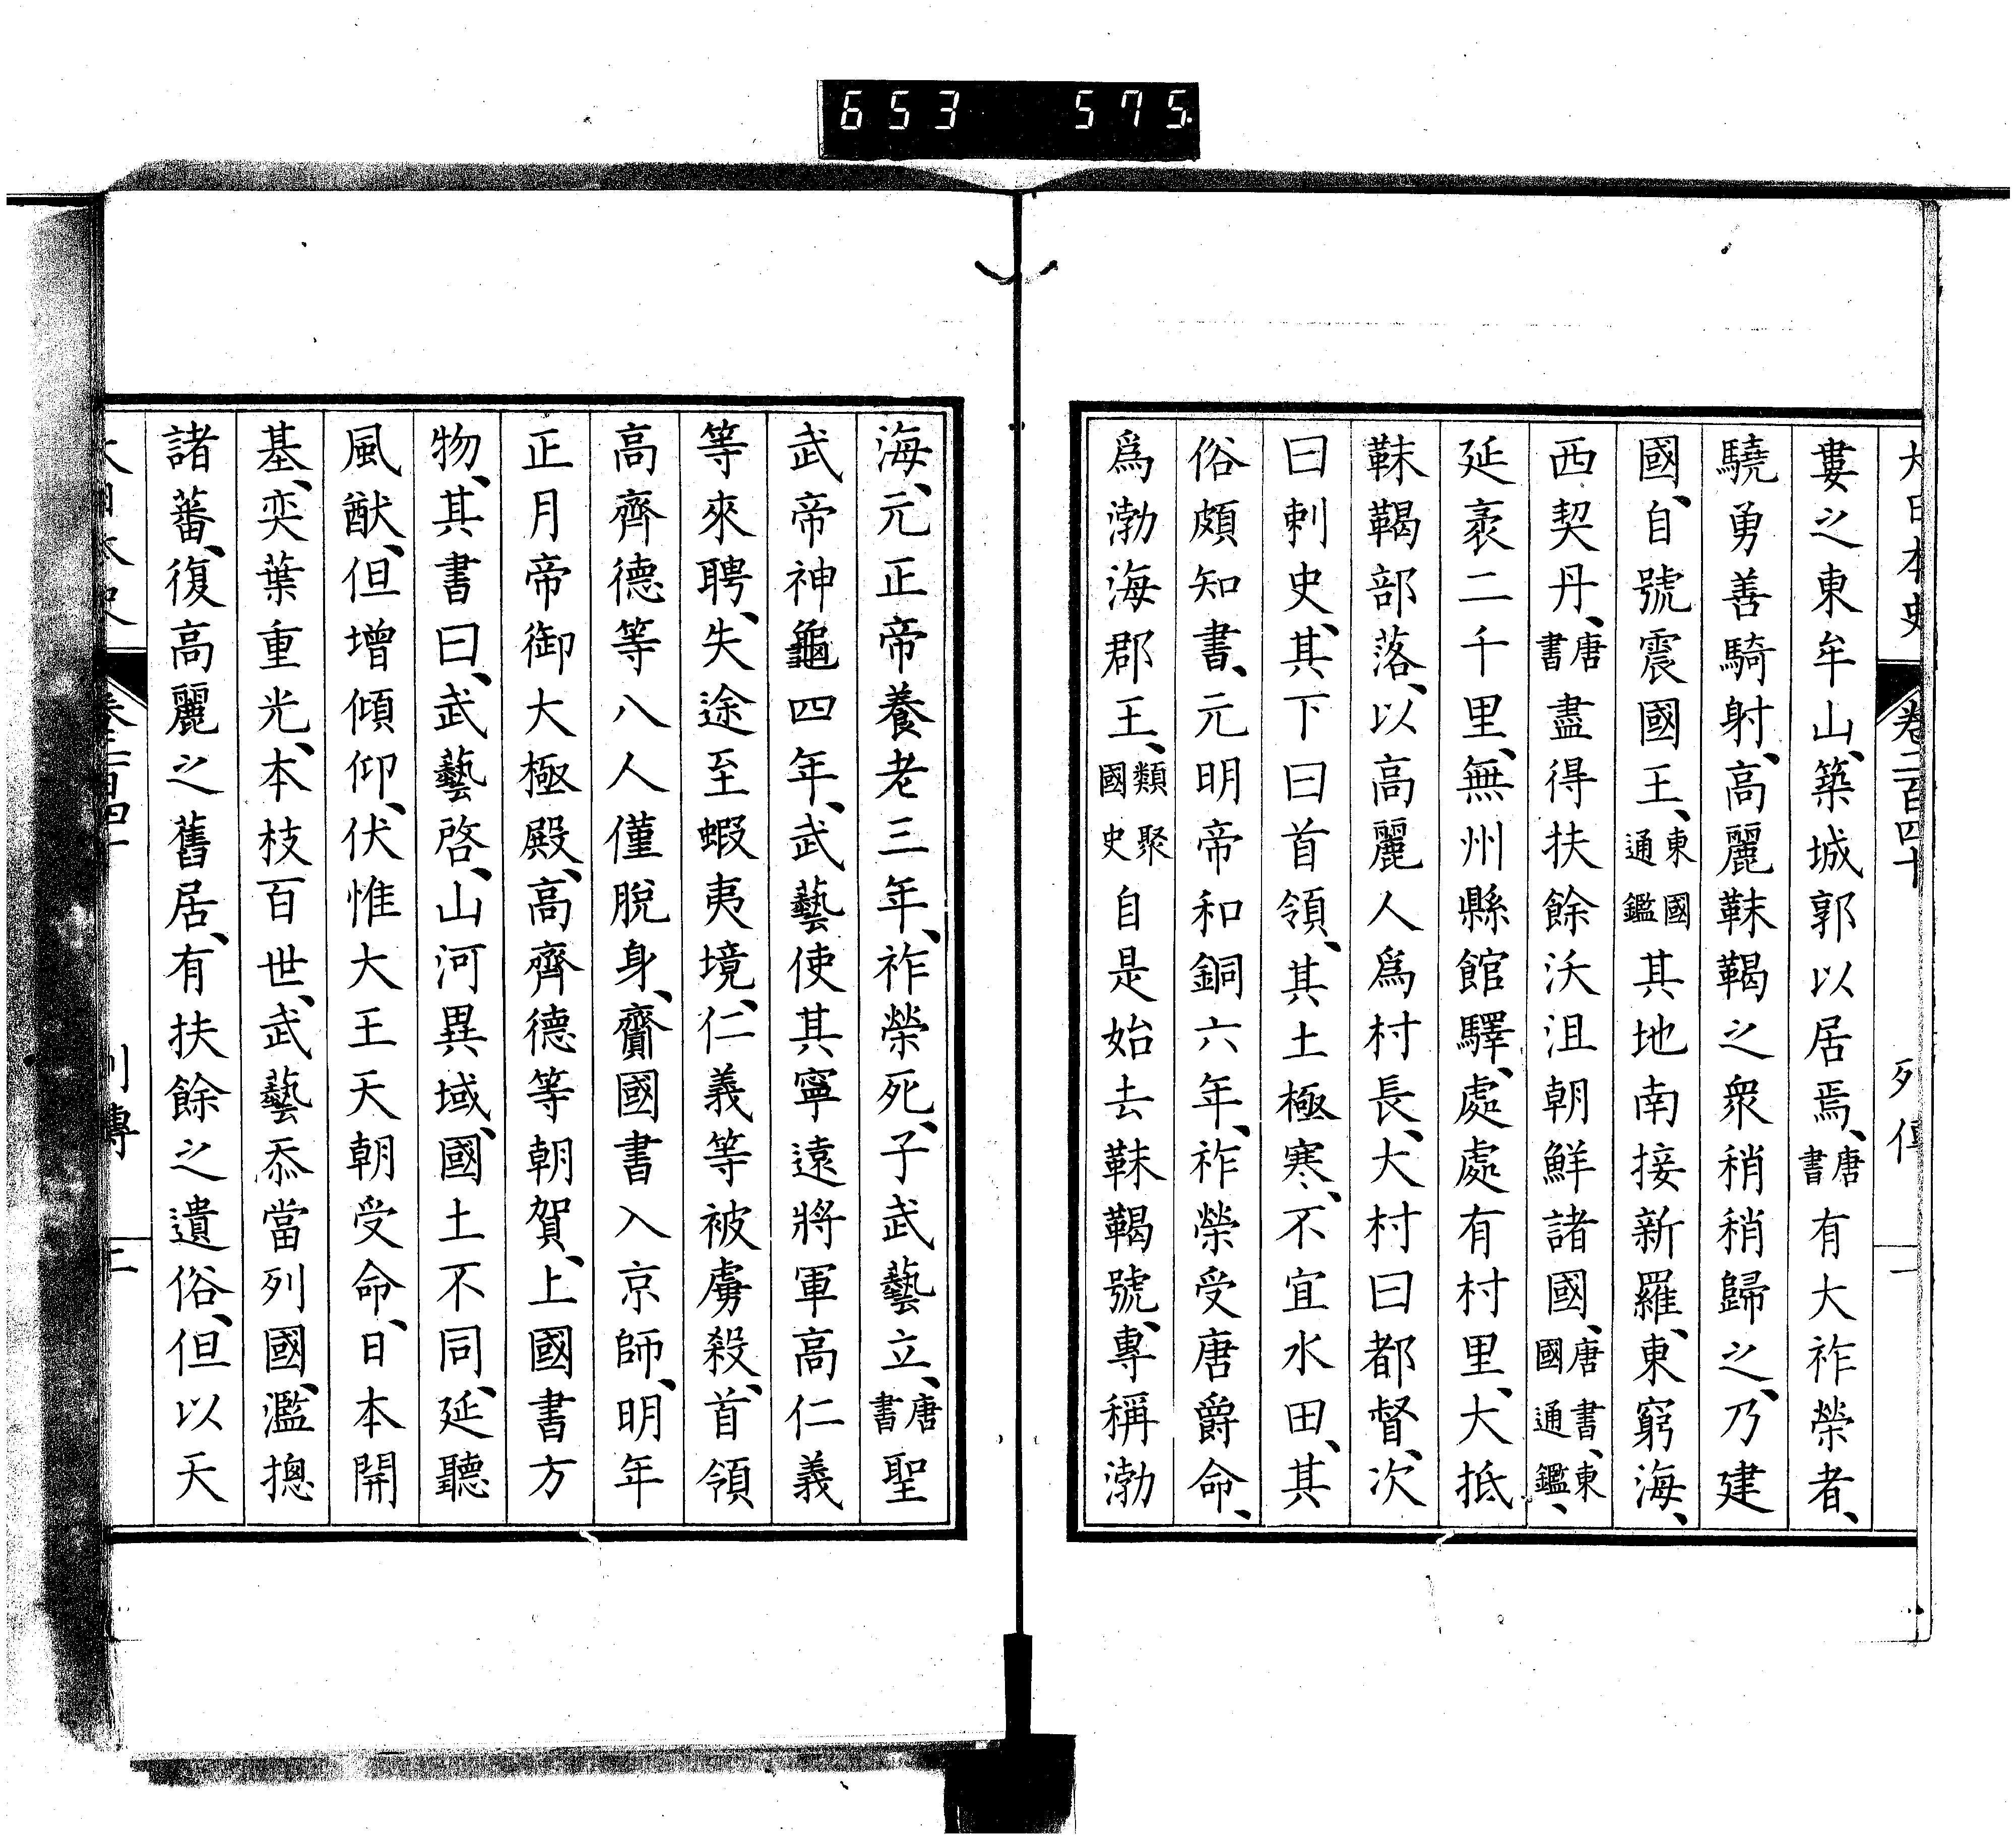 653 575.
大日本史 卷二百四十 列傳 二
婁之東牟山、築城郭以居焉、唐書有大祚榮者、
驍勇善騎射、高麗靺鞨之衆稍稍歸之、乃建
國、自號震國王、東國通鑑其地南接新羅、東窮海、
西契丹、唐書盡得扶餘沃沮朝鮮諸國、唐書、東國通鑑、
延袤二千里、無州縣館驛、處處有村里、大抵
靺鞨部落、以高麗人爲村長、大村曰都督、次
曰刺史、其下曰首領、其土極寒、不宜水田、其
俗頗知書、元明帝和銅六年、祚榮受唐爵命、
爲渤海郡王、類聚國史自是始去靺鞨號、專稱渤
海、元正帝養老三年、祚榮死、子武藝立、唐書聖
武帝神龜四年、武藝使其寧遠將軍高仁義
等來聘、失途至蝦夷境、仁義等被虜殺、首領
高齊德等八人僅脫身、齎國書入京師、明年
正月帝御大極殿、高齊德等朝賀、上國書方
物、其書曰、武藝啓、山河異域、國土不同、延聽
風猷、但增傾仰、伏惟大王天朝受命、日本開
基、奕葉重光、本枝百世、武藝忝當列國、濫摠
諸蕃、復高麗之舊居、有扶餘之遺俗、但以天